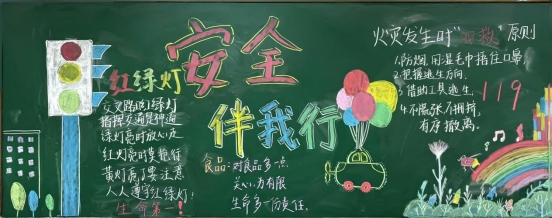 安全
伴我行
红绿灯
交叉路口红绿灯
指挥交通显神通
绿灯亮时放心走
红灯亮时要先行
黄灯亮了要注意
人人遵守红绿灯!
生命第一!
食品:对食品多一点
关心,为有限
生命多一份责任.
火灾发生时"四救"原则
1.防烟,用湿毛巾捂住口鼻.
2.把握逃生方向.
3.借助工具逃生.
4.不慌张不拥挤,
有序撤离.
119